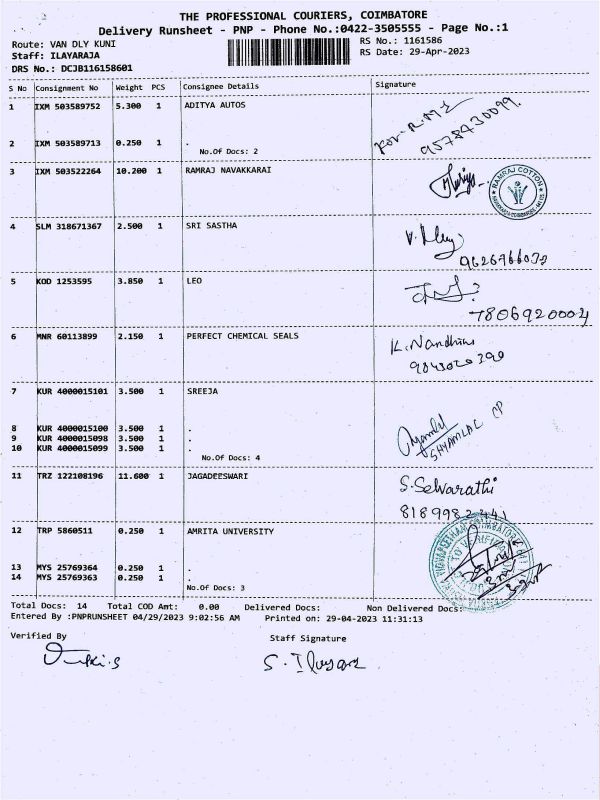 THE PROFESSIONAL COURIERS, COIMBATORE
Delivery Runsheet - PNP - Phone No.:0422-3505555 - Page No.:1
Route: VAN DLY KUNI RS No.: 1161586
Staff: ILAYARAJA RS Date: 29-Apr-2023
DRS No.: DCJB116158601
S No Consignment No Weight PCS Consignee Details Signature
1 IXM 503589752 5.300 1 ADITYA AUTOS
For. R.M.I
9578430099
2 IXM 503589713 0.250 1 .
No.Of Docs: 2
3 IXM 503522264 10.200 1 RAMRAJ NAVAKKARAI
RAMRAJ COTTON
4 SLM 318671367 2.500 1 SRI SASTHA
5 KOD 1253595 3.850 1 LEO
7806920004
6 MNR 60113899 2.150 1 PERFECT CHEMICAL SEALS
K. Nandhini
9843020390
7 KUR 4000015101 3.500 1 SREEJA
8 KUR 4000015100 3.500 1 .
9 KUR 4000015098 3.500 1 .
10 KUR 4000015099 3.500 1 .
SHYAMLAL CP
No.Of Docs: 4
11 TRZ 122108196 11.600 1 JAGADEESWARI
S. Selvarathi
12 TRP 5860511 0.250 1 AMRITA UNIVERSITY
13 MYS 25769364 0.250 1 .
14 MYS 25769363 0.250 1 .
No.Of Docs: 3
Total Docs: 14 Total COD Amt: 0.00 Delivered Docs: Non Delivered Docs:
Entered By :PNPRUNSHEET 04/29/2023 9:02:56 AM Printed on: 29-04-2023 11:31:13
Verified By Staff Signature